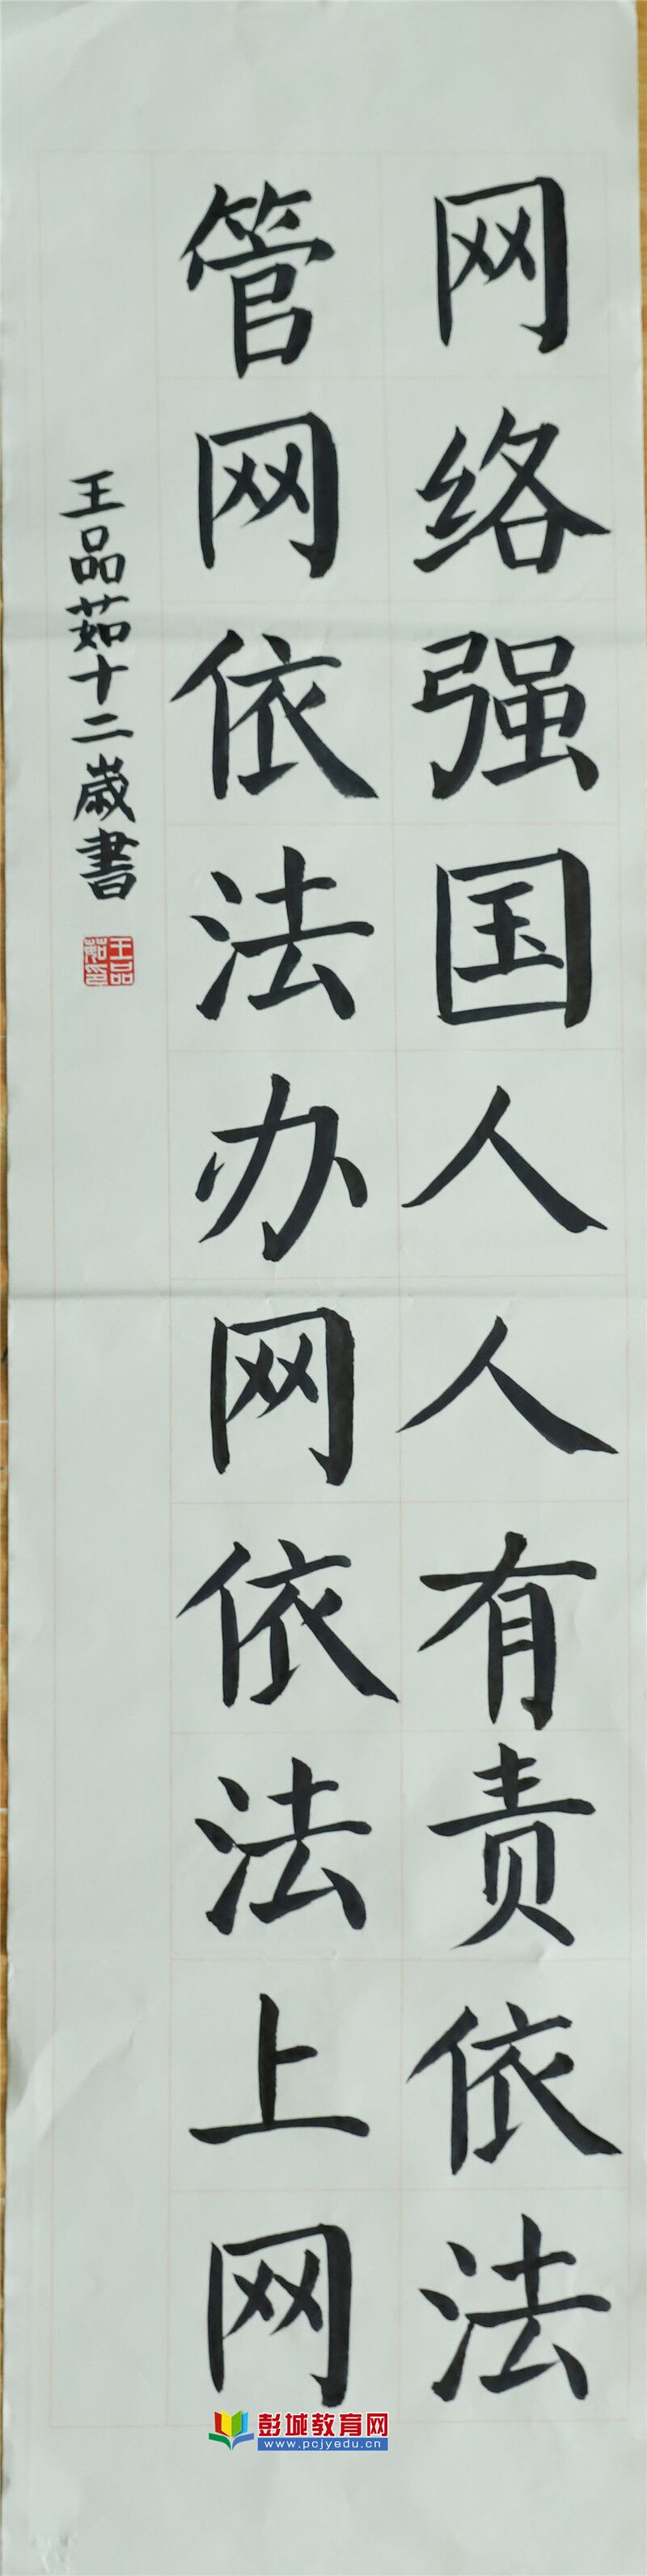 网络强国人人有责依法
管网依法办网依法上网
王品茹十二歲書
王品茹印
彭城教育网
www.pcjyedu.cn